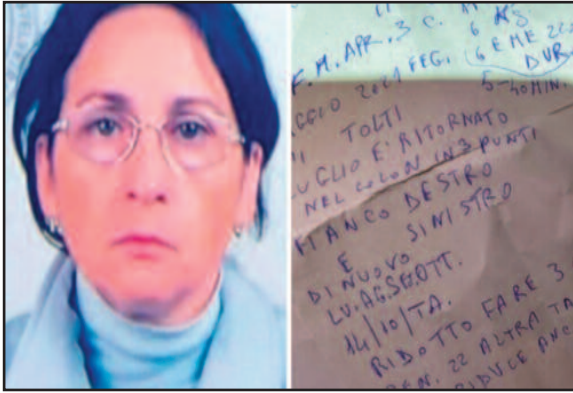 F. M. APR. 3 C.
6 KS
AGGIO 2021 FEG. (6 E ME 22
DUR
5-40 MIN.
TOLTI
UGLIO E' RITORNATO
NEL COLON IN 3 PUNTI
FIANCO DESTRO
E SINISTRO
DI NUOVO
LU.AG.SE.OTT.
14/10/TA.
RIDOTTO FARE 3
GEN. 22 ALTRA TA
RIDUCE ANC